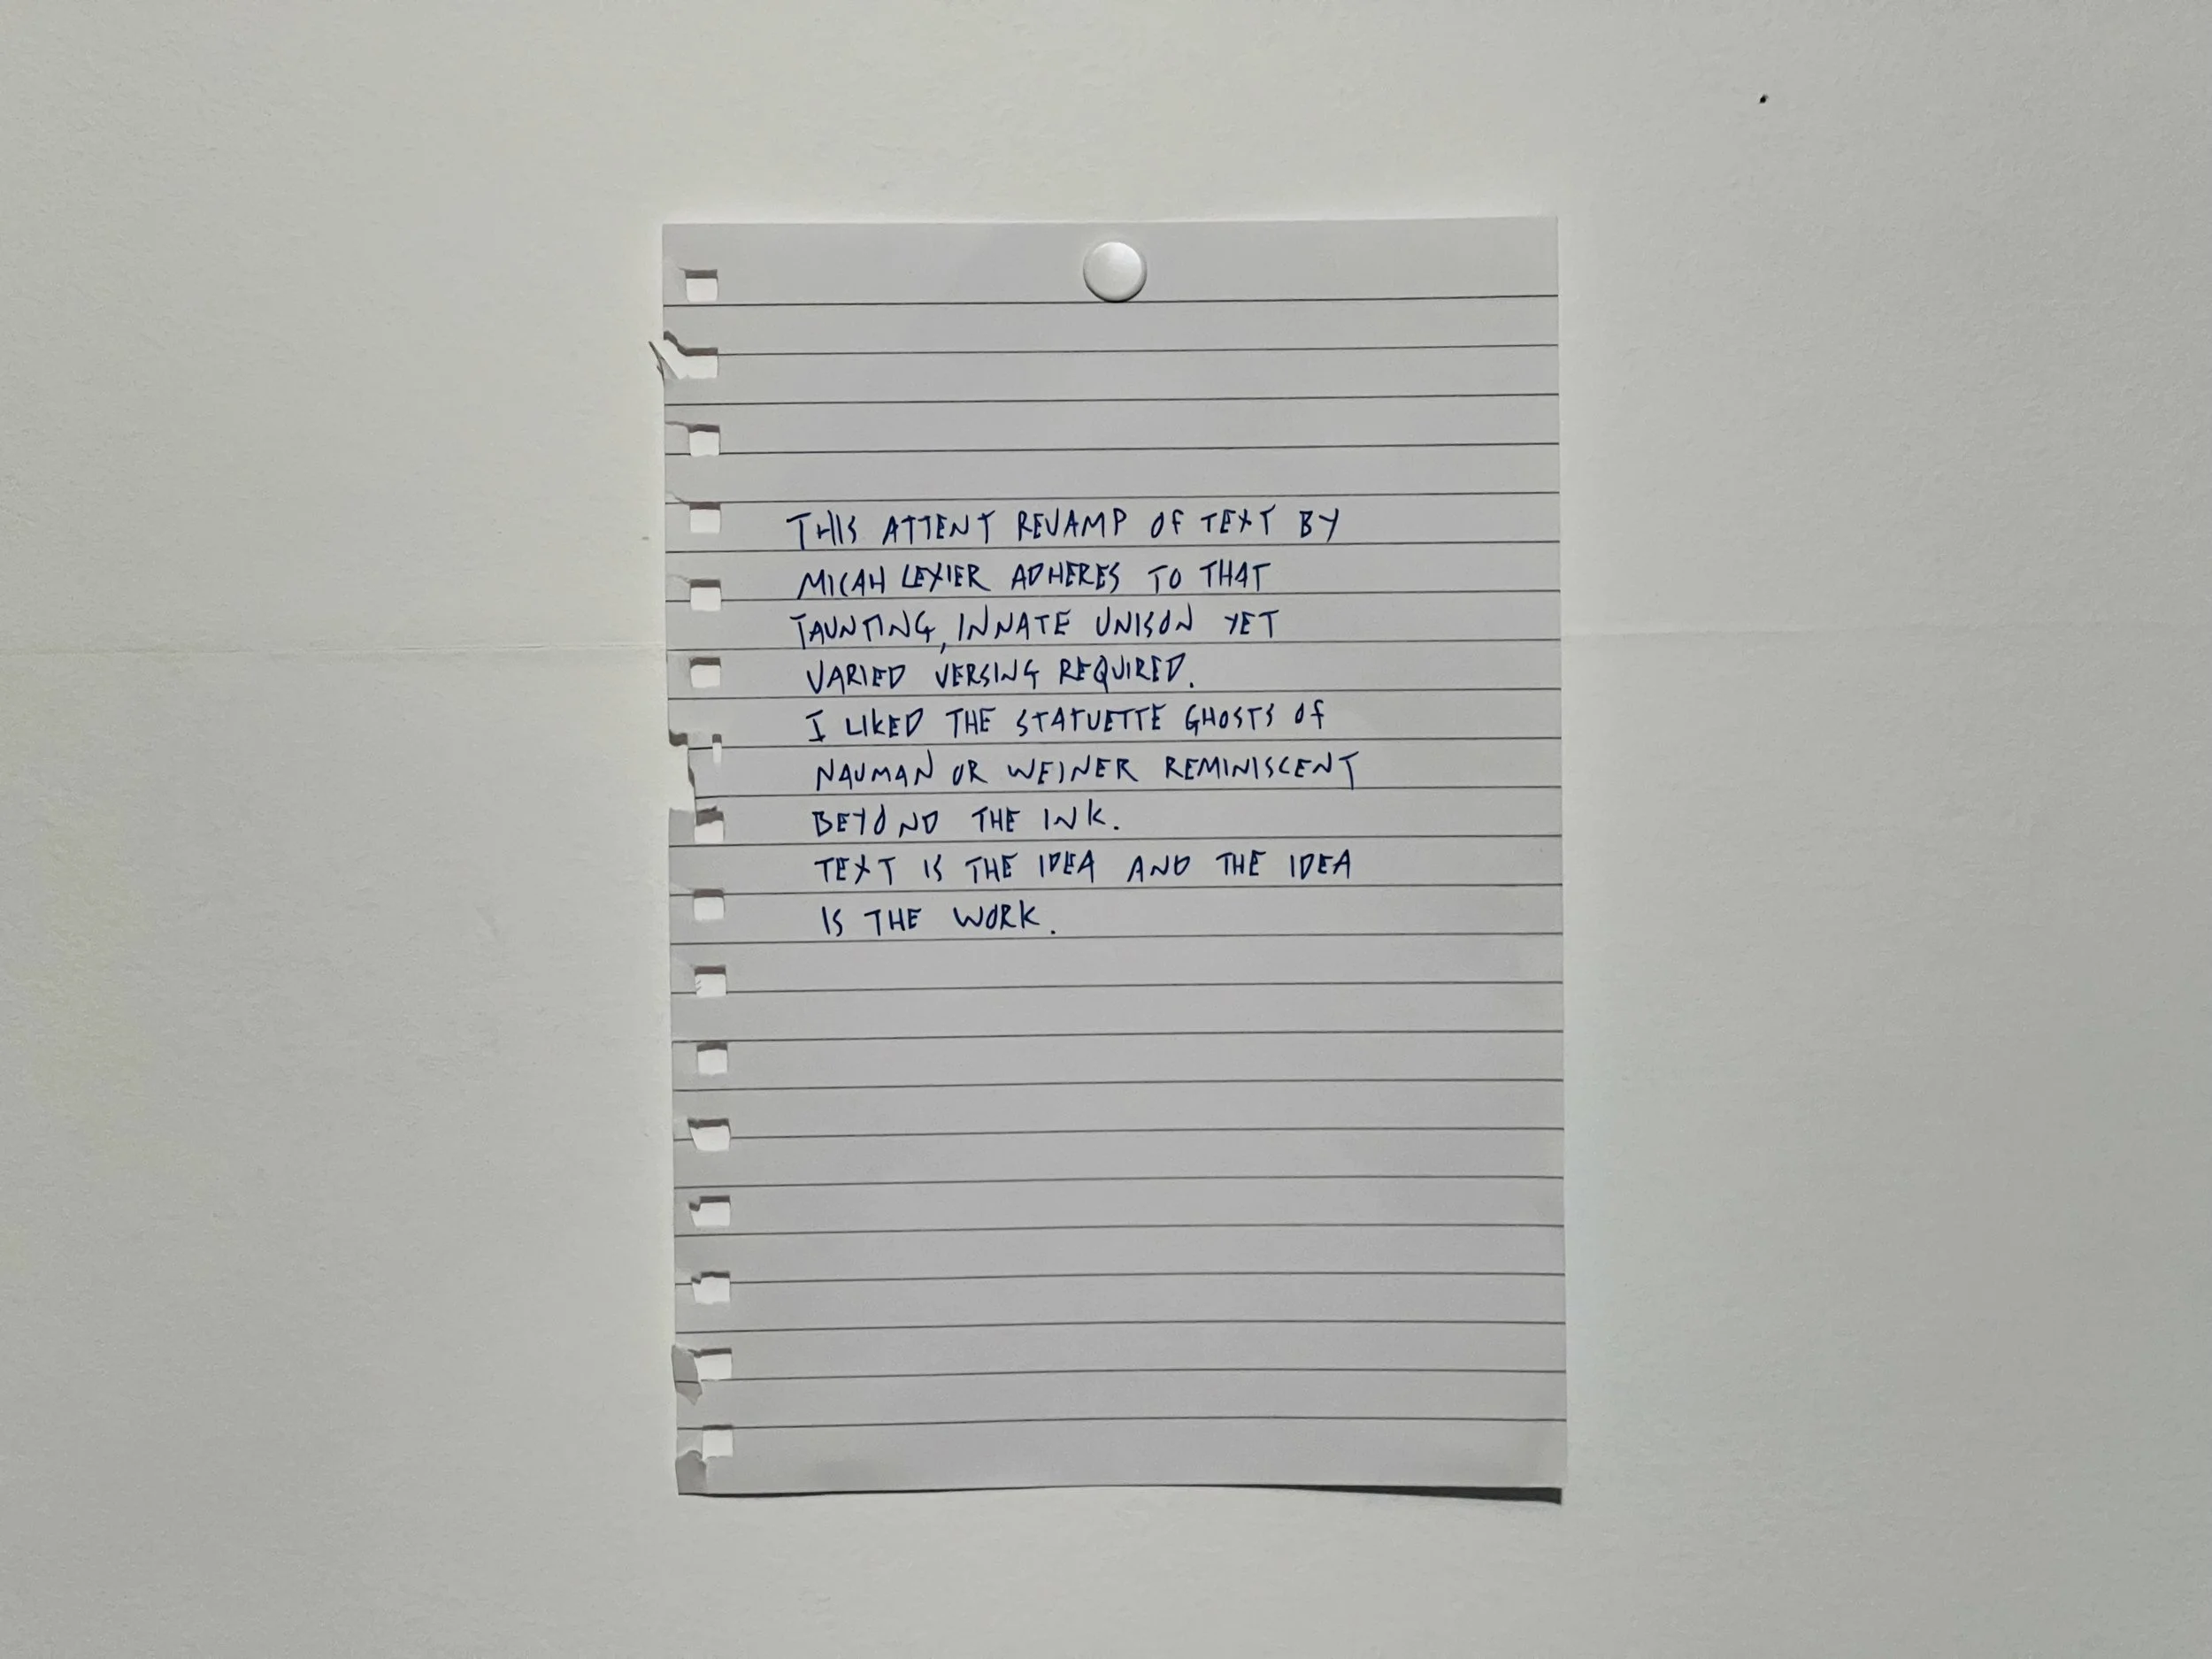 THIS ATTENT REVAMP OF TEXT BY
MICAH LEXIER ADHERES TO THAT
TAUNTING, INNATE UNISON YET
VARIED VERSING REQUIRED.
I LIKED THE STATUETTE GHOSTS OF
NAUMAN OR WEINER REMINISCENT
BEYOND THE INK.
TEXT IS THE IDEA AND THE IDEA
IS THE WORK.